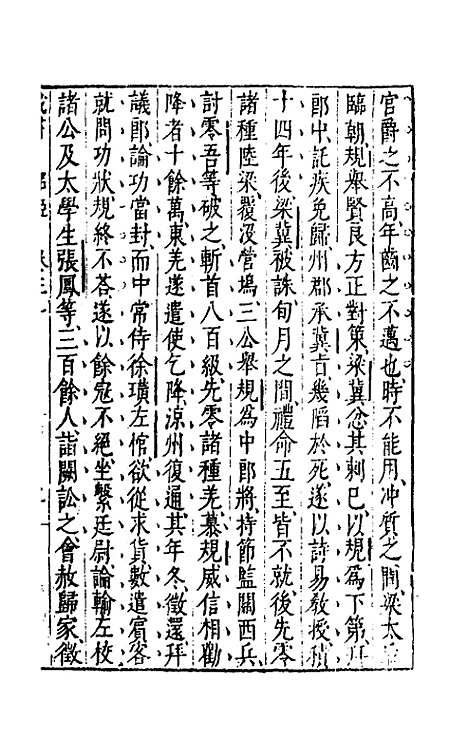 官爵之不高年齒之不邁也時不能用冲質之間梁太
臨朝規舉賢良方正對策梁冀忿其刺已以規爲下第拜
郎中託疾免歸州郡承冀旨幾䧟於死遂以詩易教授積
十四年後梁冀被誅旬月之間禮命五至皆不就後先零
諸種陸梁覆没營塢三公舉規爲中郎將持節監關西兵
討零吾等破之斬首八百級先零諸種羌慕規威信相勸
降者十餘萬東羌遂遣使乞降凉州復通其年冬徵還拜
議郎論功當封而中常侍徐璜左悺欲從求貨數遣賓客
就問功狀規終不荅遂以餘寇不絕坐繫廷尉論輸左校
諸公及太學生張鳳等三百餘人詣闕訟之會赦歸家徵